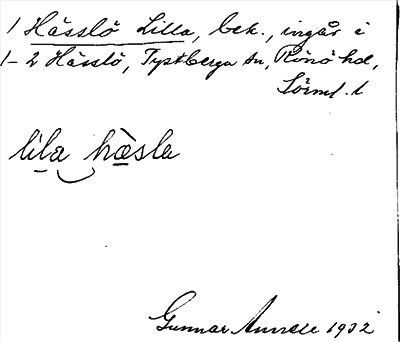 1 Hässlö Lilla, bek., ingår i
1-2 Hässlö, Tystberga sn, Rönö hd,
Sörml. l
lila hæsla
Gunnar 1932